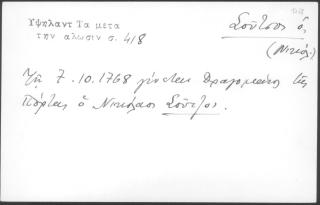 Υψηλαντ Τα μετα
την αλωσιν σ. 418
Σοῦτσος ὁ
(Νικόλ.)
Τῇ 7.10.1768 γίνεται Δραγομάνος τῆς
Πόρτας ὁ Νικόλαος Σοῦτζος.